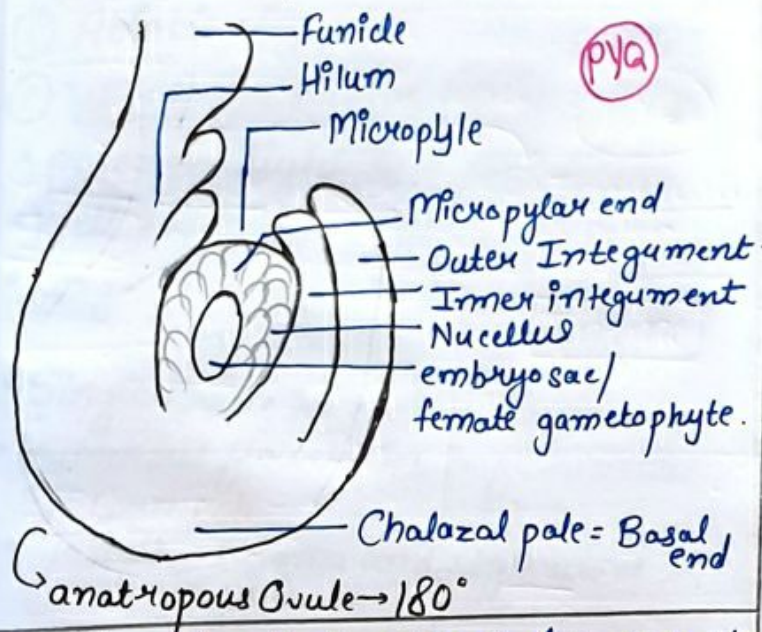 Funicle
PYQ
Hilum
Microplyle
Micropylar end
Outer Integument
Inner integument
Nucellus
embryosac/
female gametophyte.
Chalazal pole = Basal
end
anatropous Ovule → 180°